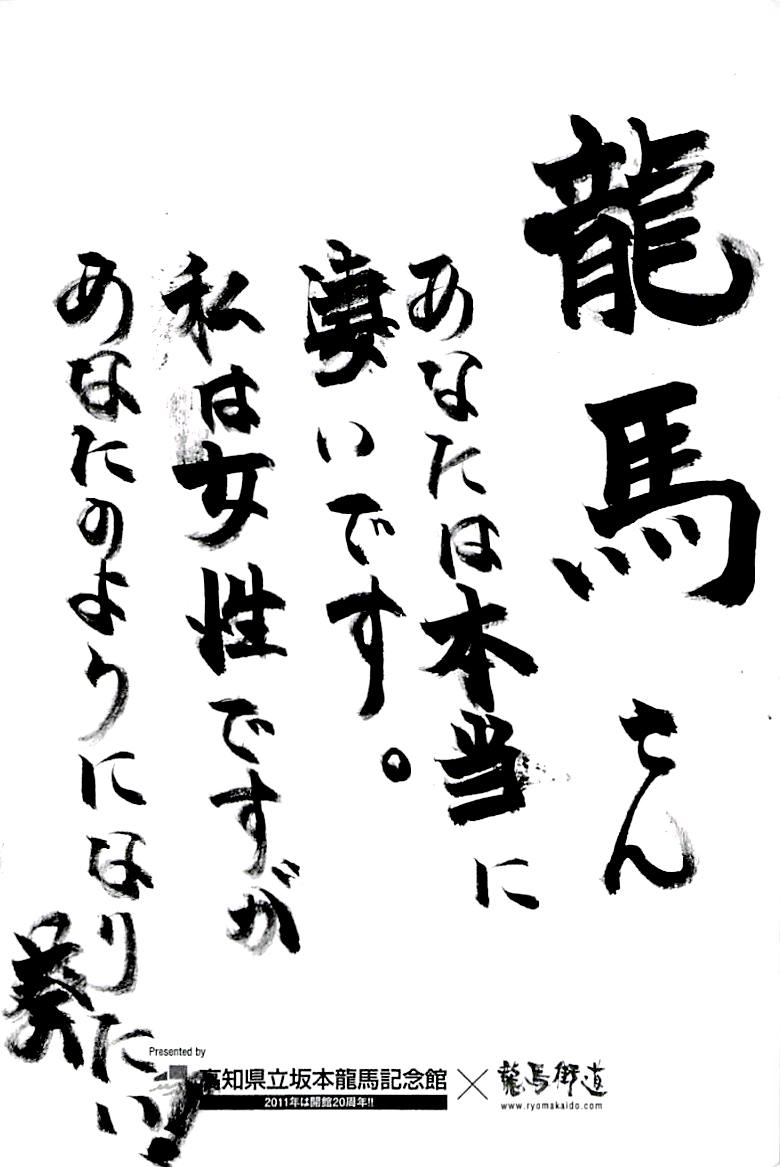 龍馬さん
あなたは本当に
凄いです。
私は女性ですが
あなたのようになりたい!
葵
Presented by
高知県立坂本龍馬記念館
2011年は開館20周年!!
×
龍馬街道
www.ryomakaido.com